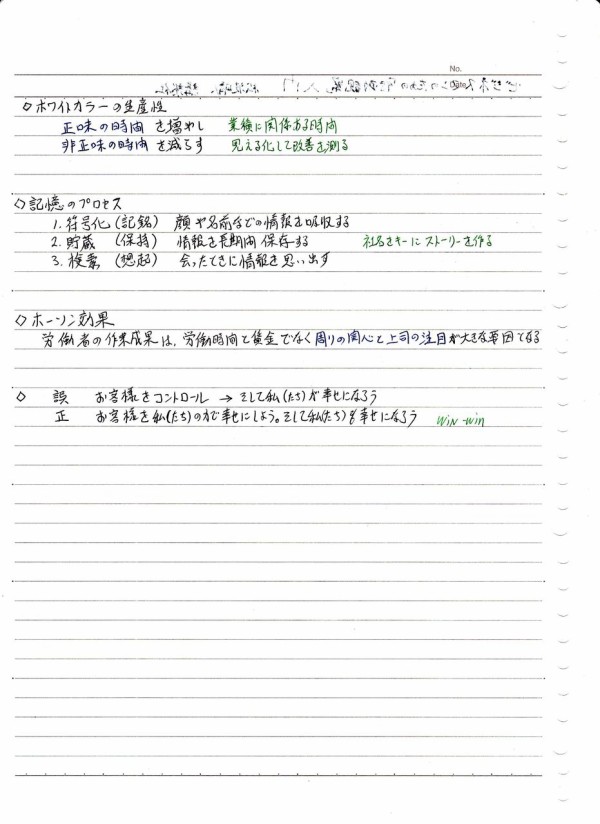 No.
◇ ホワイトカラーの生産性
正味の時間 を増やし 業績に関係ある時間
非正味の時間 を減らす 見える化して改善を測る
◇ 記憶のプロセス
1. 符号化 (記銘) 顔や名前などの情報を吸収する
2. 貯蔵 (保持) 情報を長期間保存する 社名をキーにストーリーを作る
3. 検索 (想起) 会ったときに情報を思い出す
◇ ホーソン効果
労働者の作業成果は、労働時間と賃金でなく周りの関心と上司の注目が大きな要因となる
◇ 誤 お客様をコントロール → そして私(たち)が幸せになろう
正 お客様を私(たち)の力で幸せにしよう。そして私(たち)も幸せになろう win-win